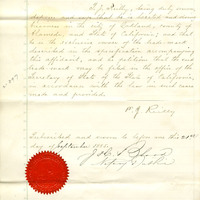 J. J. Reilly, being duly sworn
deposes and says that he is located and does
business in the County of
Alameda, and State of California; and that
he is the exclusive owner of the trade mark
described in the specification accompanying
this affidavit, and so petitions that these
trade mark may be filed in the office of the
Secretary of State of the State of California,
in accordance with the law in such case
made and provided.
J. J. Reilly
Subscribed and sworn to before me this
day of September 1880.
Notary Public